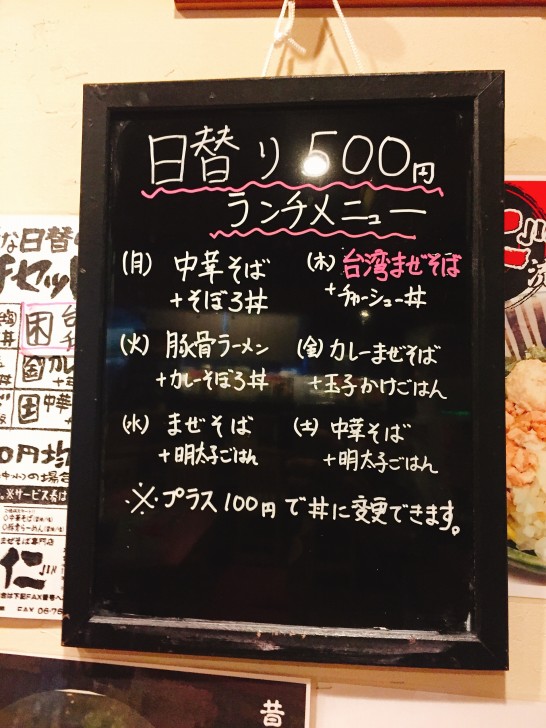 日替り500円
ランチメニュー
(月) 中華そば
+そぼろ丼
(火) 豚骨ラーメン
+カレーそぼろ丼
(水) まぜそば
+明太子ごはん
(木) 台湾まぜそば
+チャーシュー丼
(金) カレーまぜそば
+玉子かけごはん
(土) 中華そば
+明太子ごはん
※プラス100円で丼に変更できます。
な日替
木
金 カレ
土 中華
0円均
の場合
※サービス券は
まぜそば専門店
仁
は下記FAX番号へ
FAX 06-75
昔